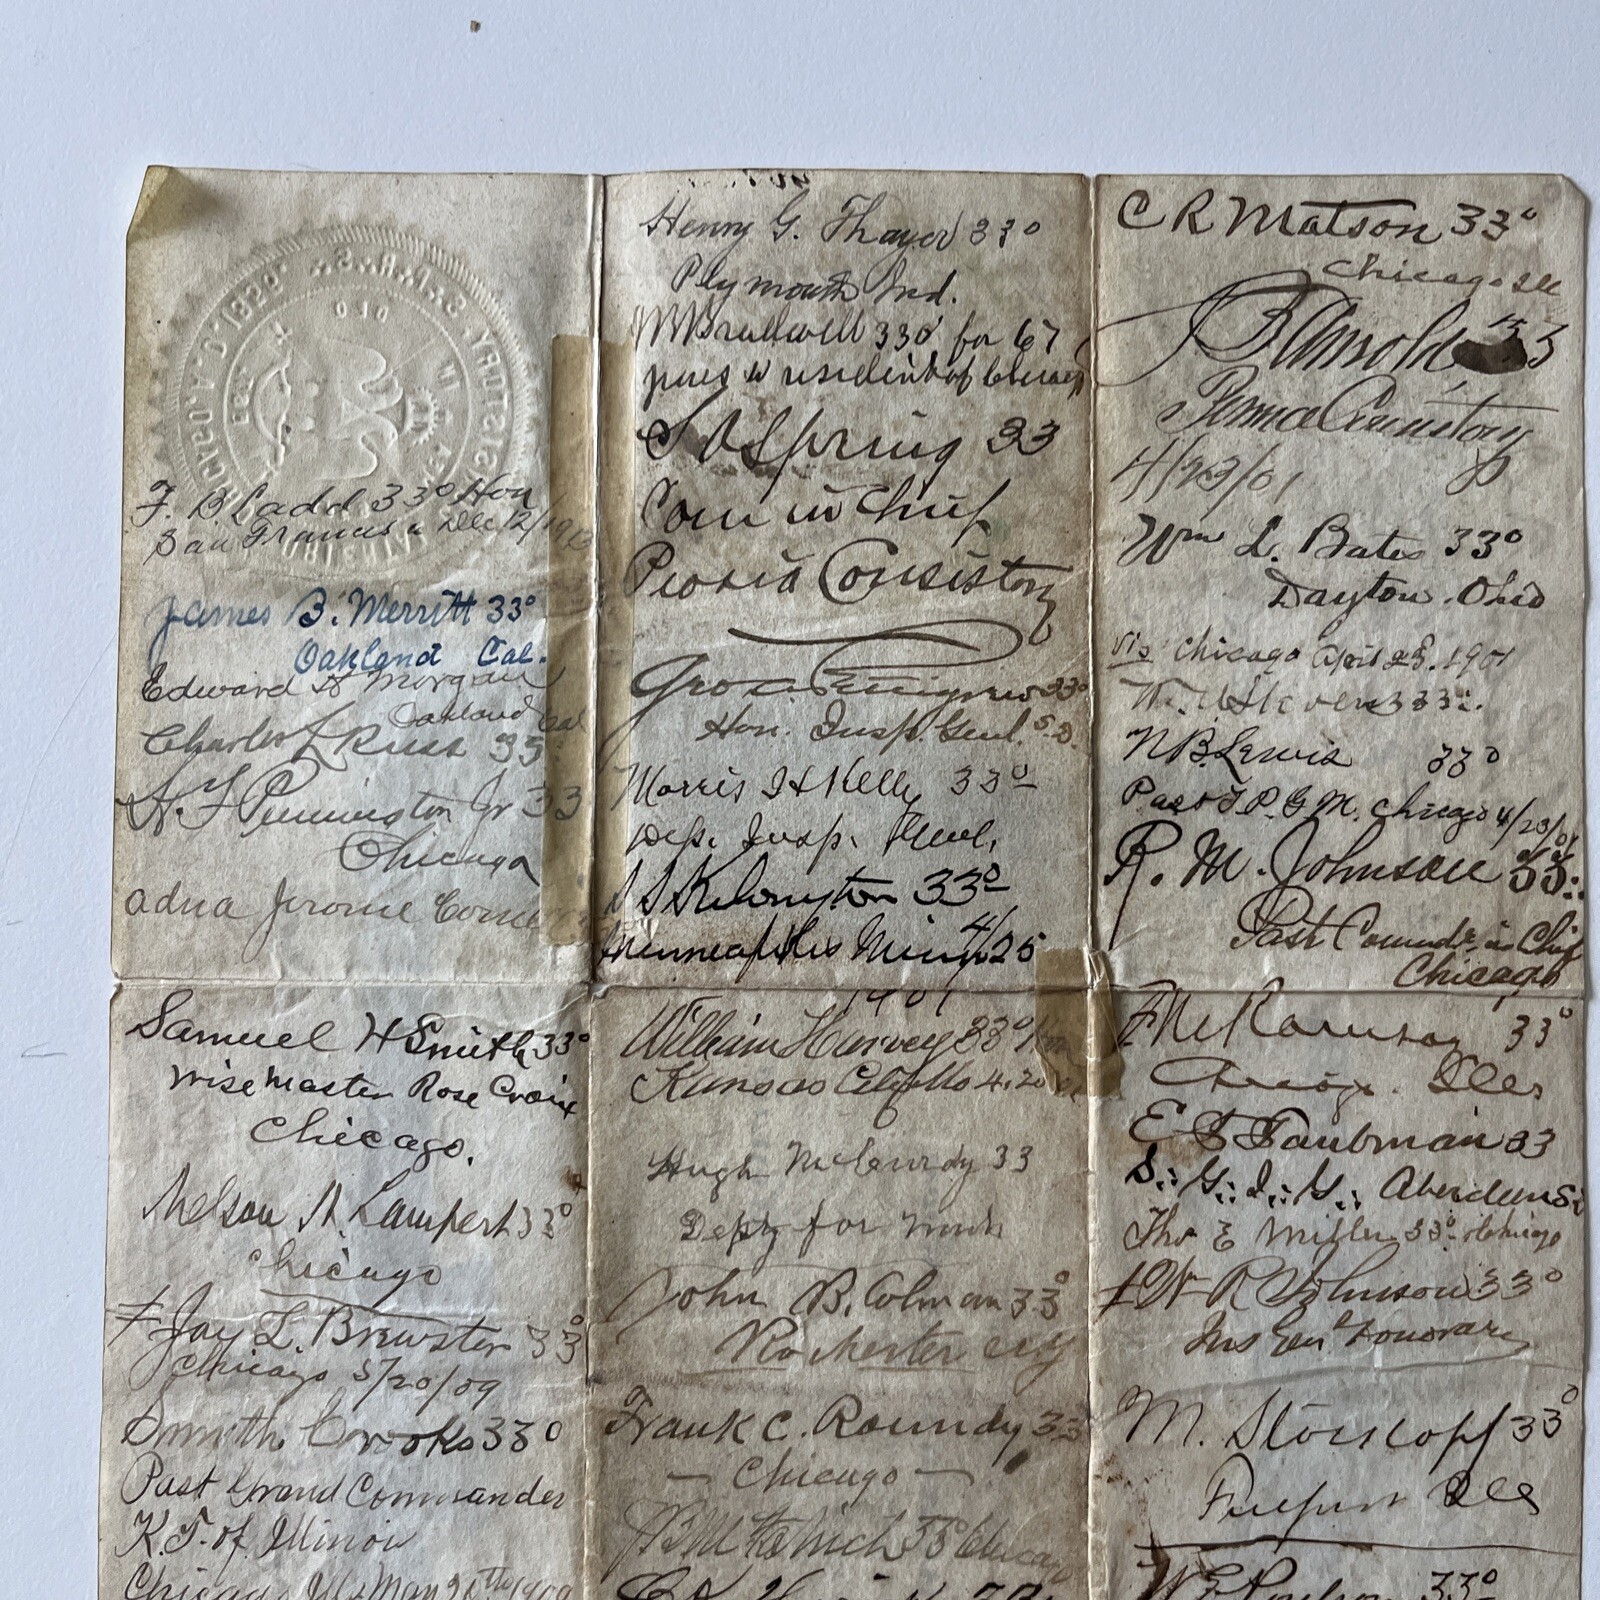 F. B Ladd 33° Hon
San Francisco Dec 12/
James B. Merritt 33°
Oakland Cal.
Edward H Morgan
Oakland Cal
Charles L Rush 33°
H. F Pennington Jr 33
Chicago
Adna Jerome
Samuel H Smith 33°
Wise Master Rose Croix
Chicago.
Nelson N. Lampert 33°
Chicago
Jay L. Brewster 33°
Chicago 5/20/09
Smith Crooks 33°
Past Grand Commander
K. T. of Illinois
Chicago Ills May 20th 1909
Henry G. Thayer 33°
Plymouth Ind.
33° for 67
resident of Chicago
S A Spring 33
Com in Chief
Peoria Consistory
33°
Hon. Insp. Genl. S. D.
Morris H Kelly 33°
Dep. Insp. Genl.
33°
Minneapolis Minn 4/25
1901
William Harvey 33° Hon
Kansas City Mo 4. 20
Hugh McCurdy 33
Depty for Mich
John B. Colman 33°
Rochester City
Frank C. Roundy 33
— Chicago —
33° Chicago
C R Matson 33°
Chicago Ill
B Arnold 33
Consistory
4/23/01
Wm L. Bates 33°
Dayton. Ohio
Chicago April 23. 1901
33
N B. Lewis 33°
Past T. P. G. M. Chicago 4/23/01
R. M. Johnson 33°
Past Commdr in Chief
Chicago
Ramsay 33°
Chicago. Ills
E T Taubman 33
S∴ G∴ I∴ G∴ Aberdeen S
Tho E Miller 33° Chicago
Wm R Johnson 33°
Ins Genl Honorary
M. Stoskopf 33°
Freeport Ills
33°